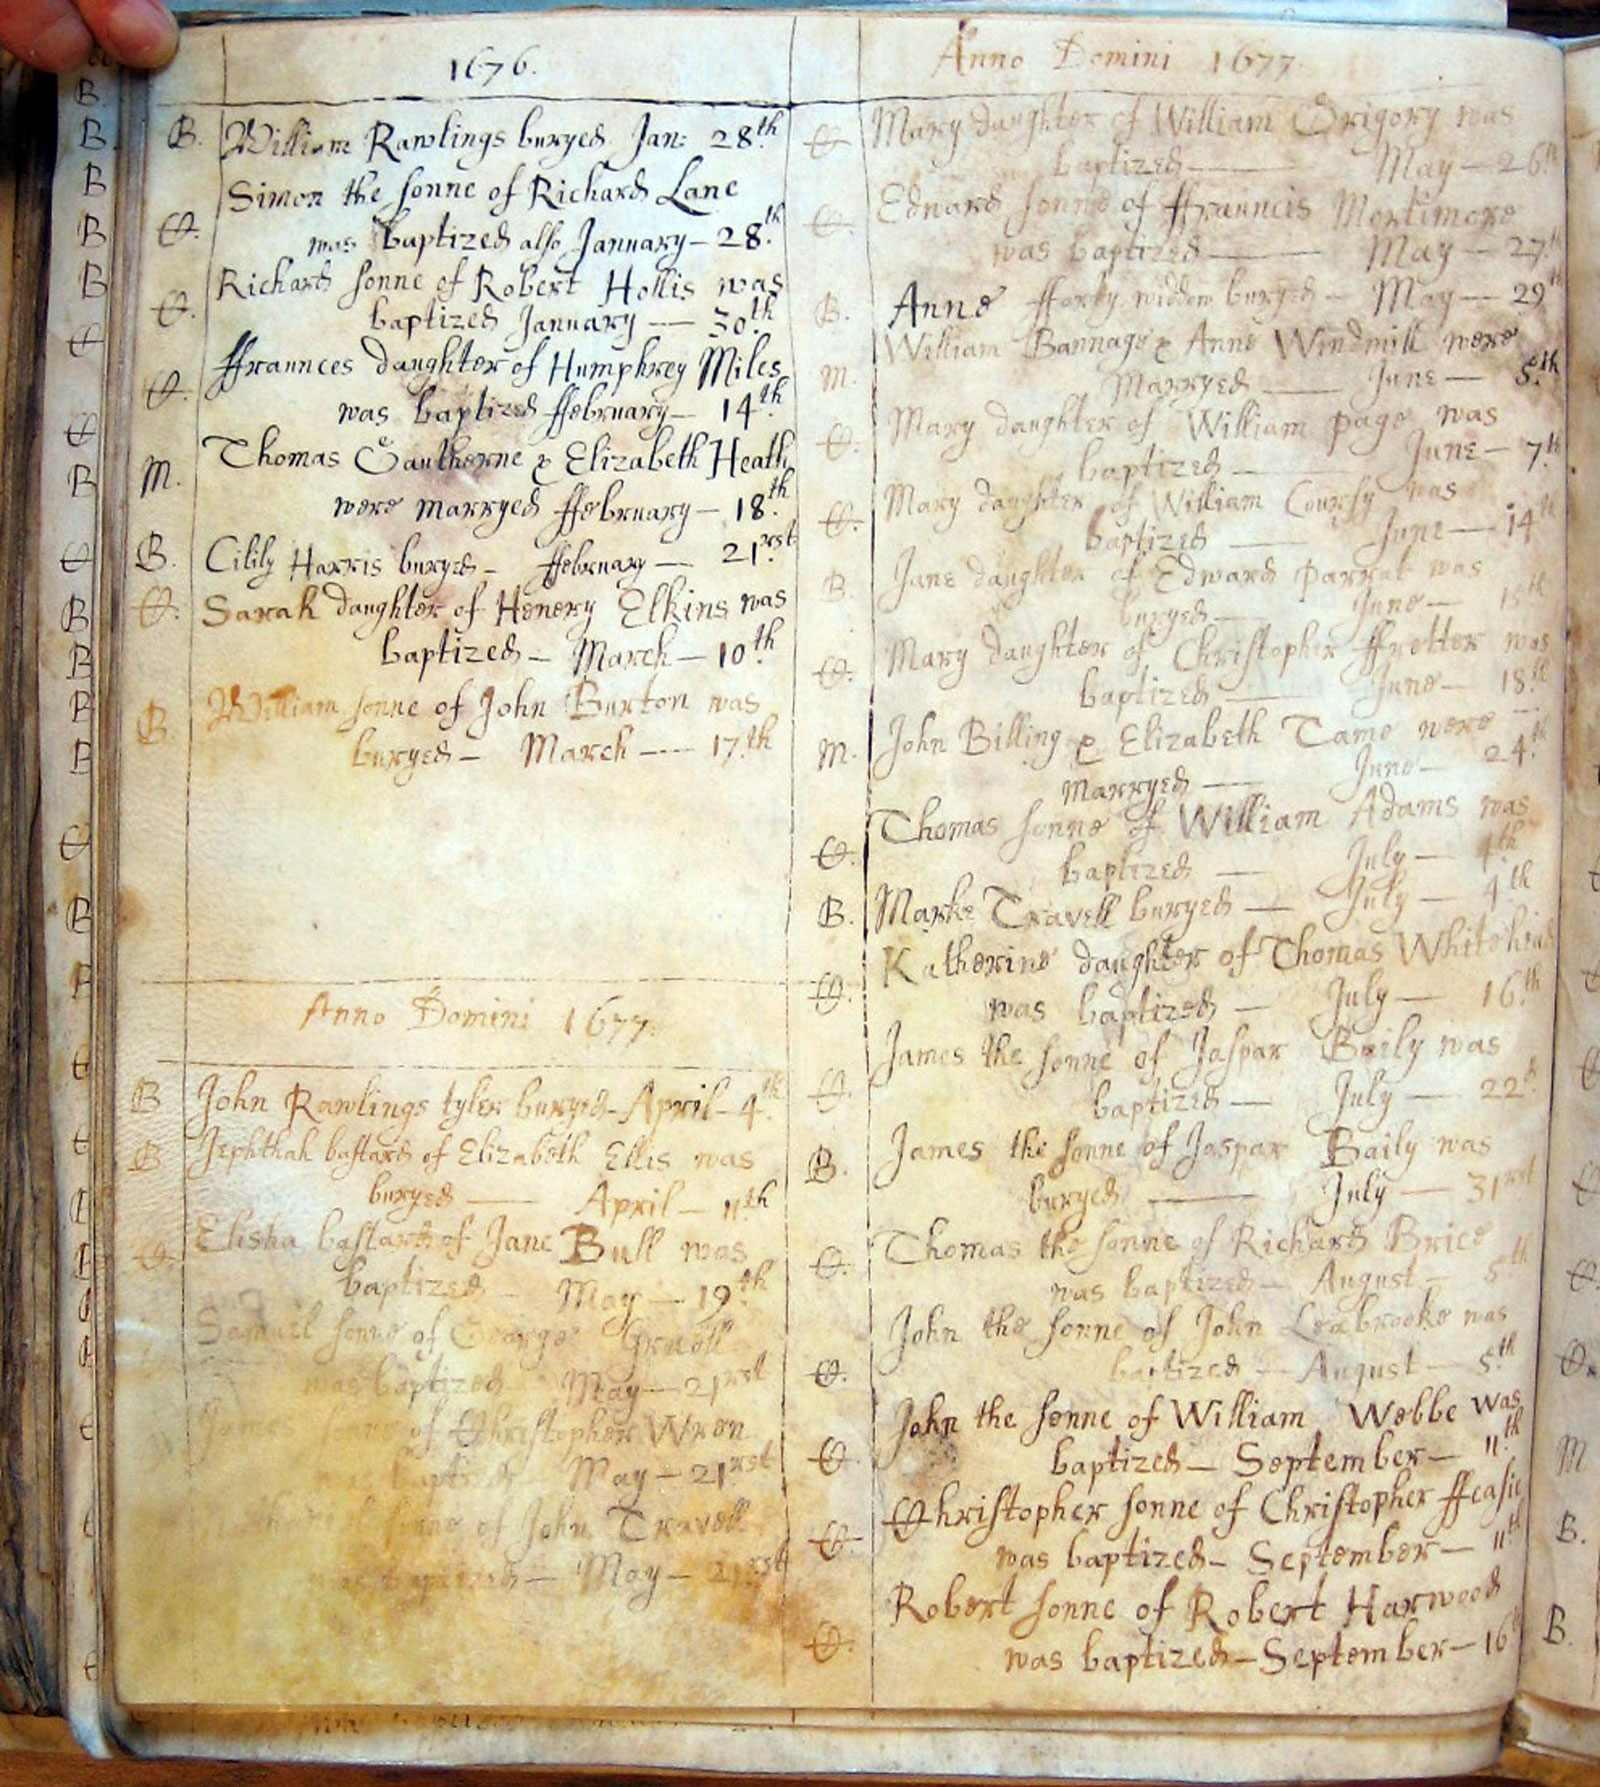 1676.
B. William Rawlings buryed Jan: 28th
Simon the sonne of Richard Lane
C. was baptized also January - 28th
Richard sonne of Robert Hollis was
C. baptized January — 30th
ffraunces daughter of Humphrey Miles
C. was baptized ffebruary - 14th
M. Thomas Gautherne & Elizabeth Heath
were marryed ffebruary - 18th
B. Cilily Harris buryed - ffebruary — 21rst
C. Sarah daughter of Henery Elkins was
baptized - March - 10th
William sonne of John Burton was
B. buryed - March — 17th
Anno Domini 1677.
B John Rawlings tyler buryed - April - 4th
B Jephthah bastard of Elizabeth Ellis was
buryed — April - 11th
C. Elisha bastard of Jane Bull was
baptized - May — 19th
Samuel sonne of George Gruell
was baptized May - 21rst
James sonne of Christopher Wren
baptized May - 21rst
sonne of John Travell
was baptized - May - 21rst
Anno Domini 1677
C. Mary daughter of William Grigory was
baptized — May - 26th
C. Edward sonne of ffrauncis Mortimore
was baptized — May - 27th
B. Anne widdow buryed - May - 29th
William Bannage & Anne Windmill were
M. Marryed — June — 5th
C. Mary daughter of William Page was
baptized — June - 7th
C. Mary daughter of William was
baptized — June — 14th
B. Jane daughter of Edward Parrat was
buryed — June — 15th
C. Mary daughter of Christopher ffretter was
baptized — June — 18th
M. John Billing & Elizabeth Tame were
Marryed — June — 24th
Thomas sonne of William Adams was
C. baptized — July — 4th
B. Marke Travell buryed — July — 4th
Katherine daughter of Thomas
C. was baptized — July — 16th
James the sonne of Jaspar Baily was
C. baptized — July — 22d
B. James the sonne of Jaspar Baily was
buryed — July — 31rst
C. Thomas the sonne of Richard Brice
was baptized - August - 5th
John the sonne of John Leabrooke was
C. baptized - August - 5th
John the sonne of William Webbe was
C. baptized - September - 11th
C. Christopher sonne of Christopher
was baptized - September - 11th
Robert sonne of Robert Harwood
C. was baptized - September - 16th